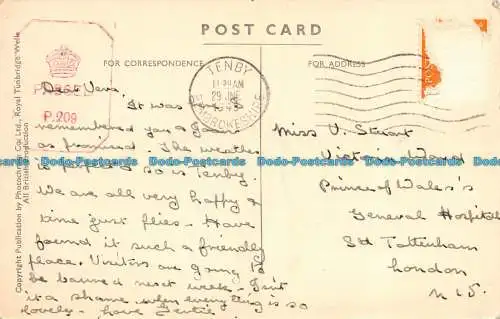 POST CARD
FOR CORRESPONDENCE
FOR ADDRESS
TENBY
11 AM
29 JNE
PEMBROKESHIRE
PASSED
P.209
Copyright Publication by Photochrom Co. Ltd., Royal Tunbridge Wells
All British Production
Dear Vera,
It was
remembered you & Jean
as promised. The weather
is perfect & so is Tenby.
We are all very happy &
time just flies. Have
found it such a friendly
place. Visitors are going to
be banned next week. Isn't
it a shame when everything is so
lovely - love Gertie
Miss V. Stewart
Victoria Ward
Prince of Wales's
General Hospital
Sth Tottenham
London
N 15.
Bodo-Postcards Bodo-Postcards Bodo-Postcards Bodo-Postcards